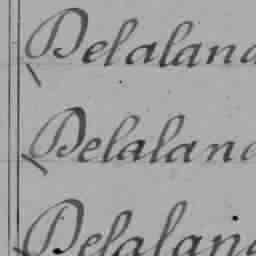 Delaland
Delaland
Delaland